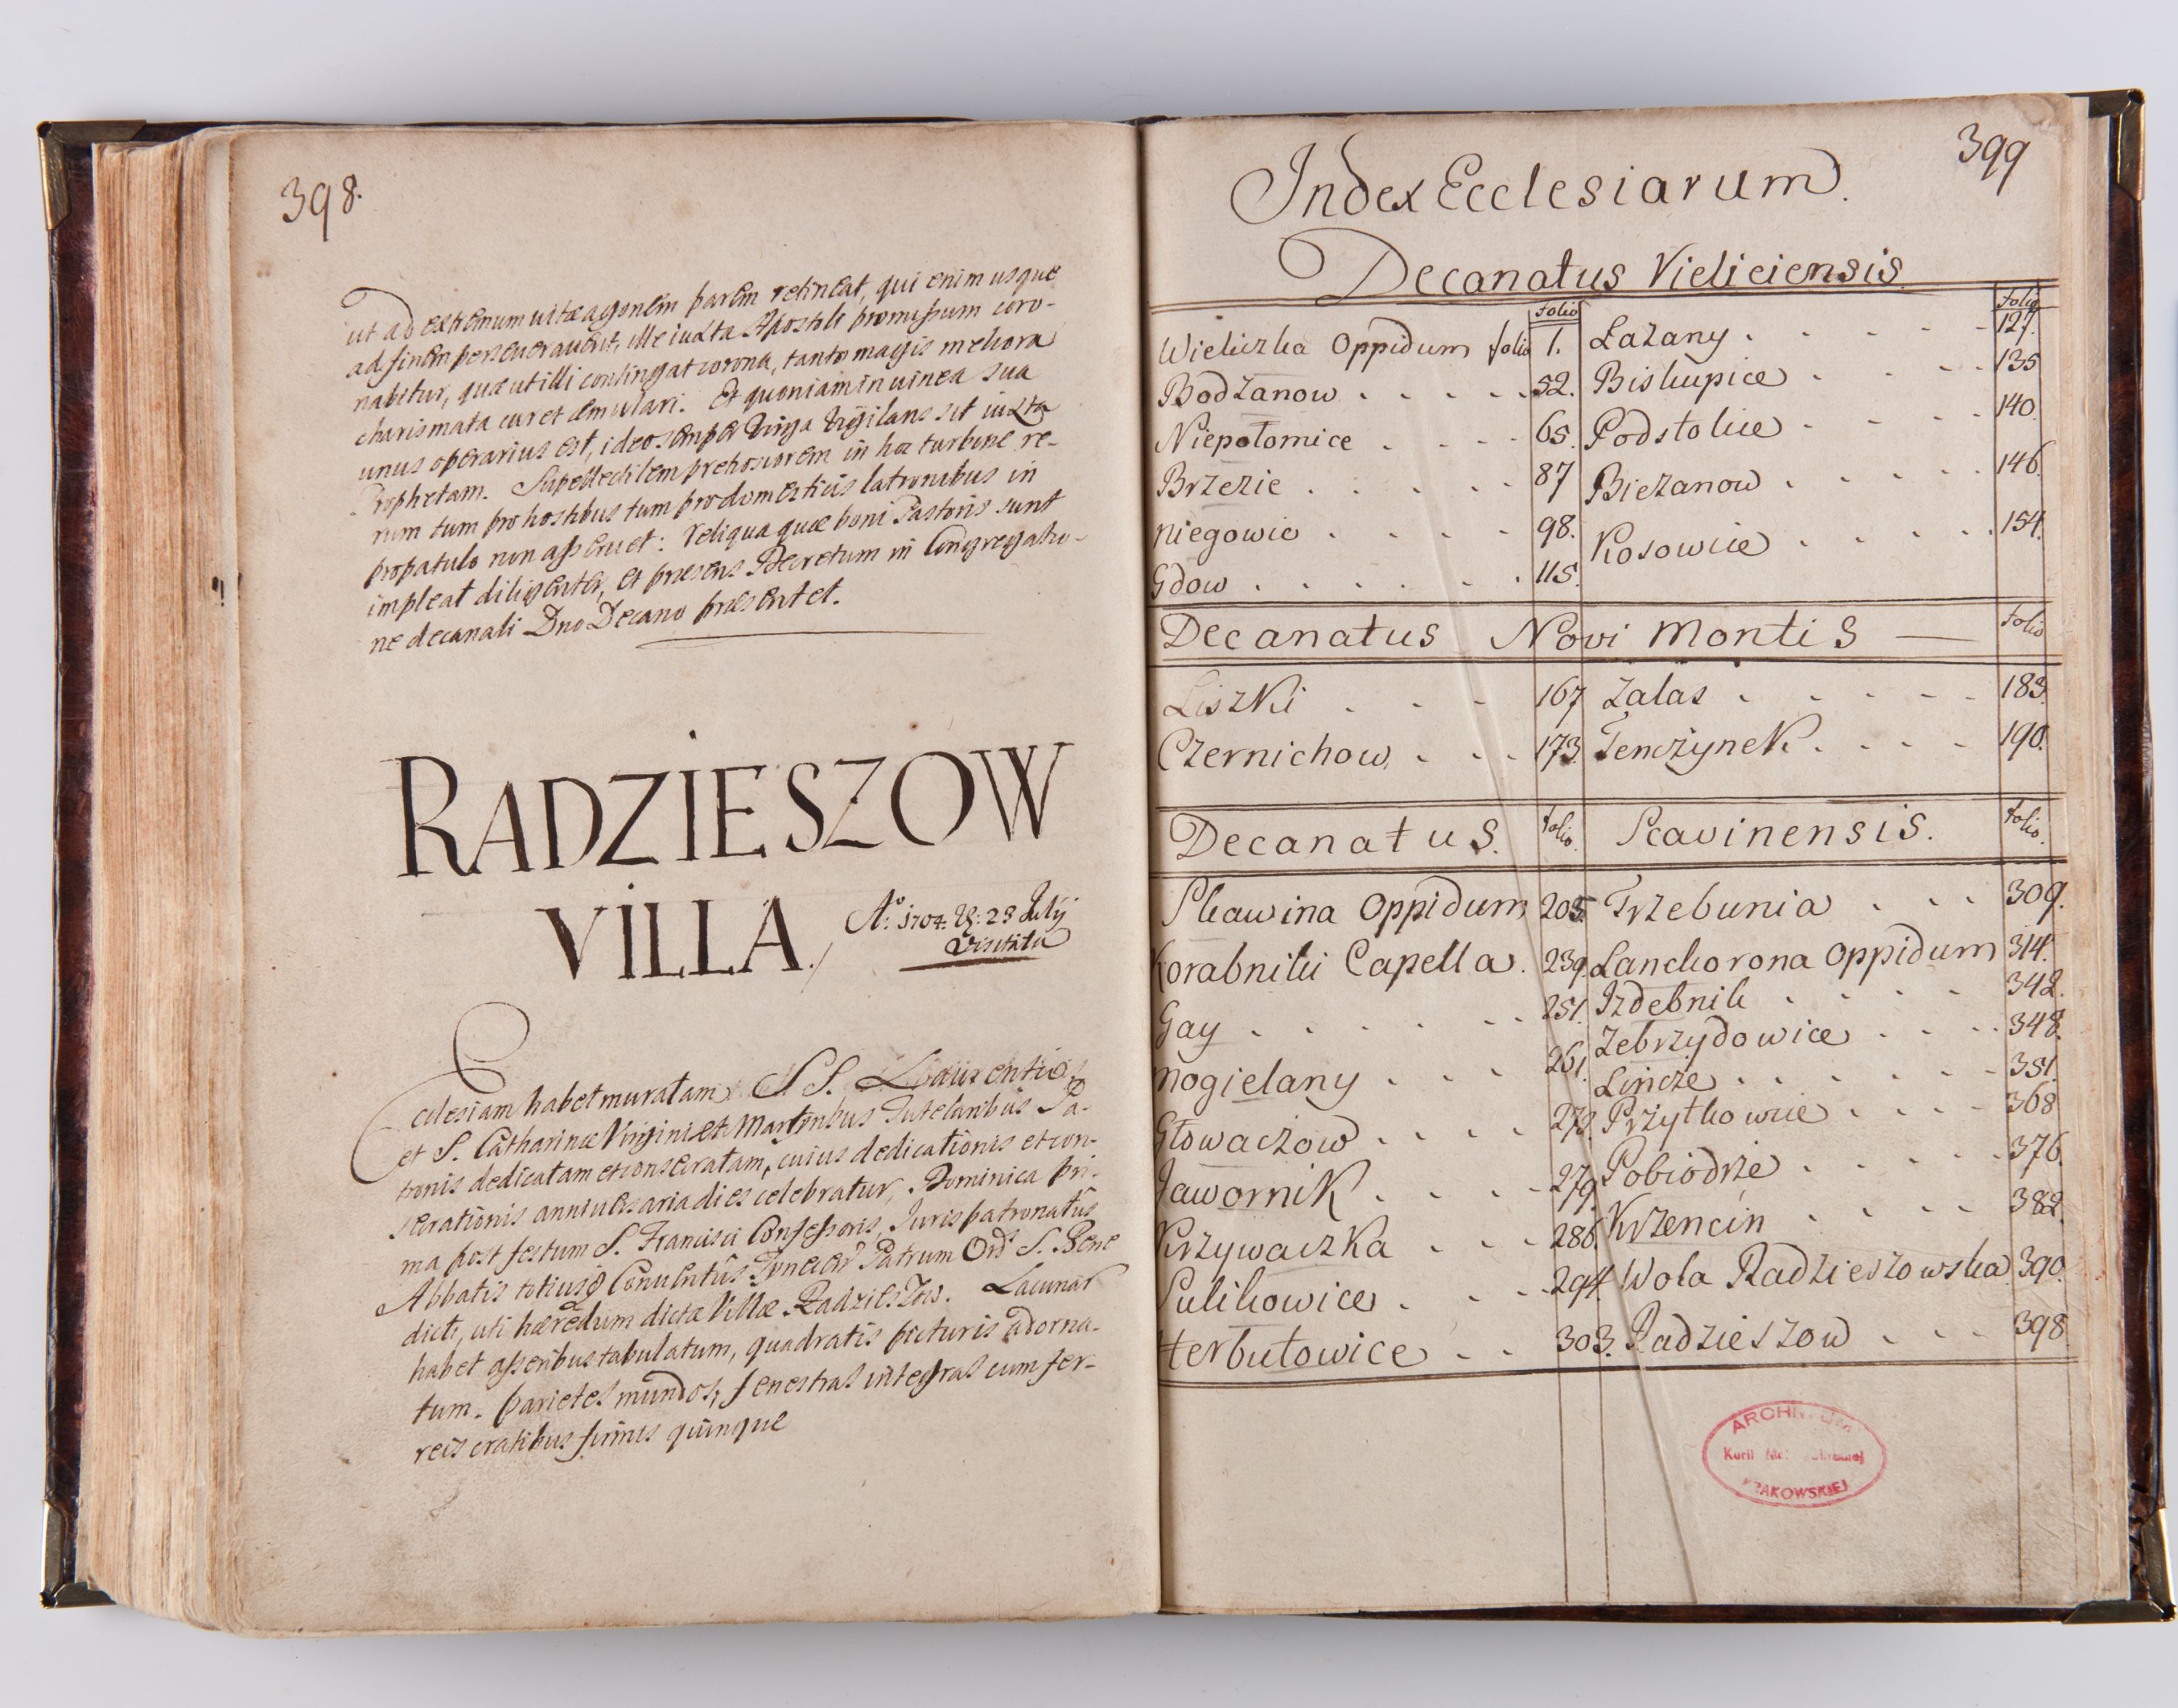 398.
ut ad extremum uitæ agonem parem retineat, qui enim usque
ad finem perseuerauerit, ille iuxta Apostoli promissum coro-
nabitur, quæ ut illi contingat corona, tanto magis meliora
charismata curet æmulari. Et quoniam in uinea sua
unus operarius est, ideo semper Virga Vigilans sit iuxta
Prophetam. Supellectilem pretiosiorem in hoc turbine re-
rum tum pro hostibus tum pro domesticis latronibus in
propatulo non asseruet: Reliqua quæ boni Pastoris sunt
impleat diligenter, et præsens Decretum in Congregatio-
ne decanali Dno Decano præsentet.
RADZIESZOW
VILLA.
Aº: 1704. D: 28 July
Visitata
Ecclesiam habet muratam S S. Laurentio
et S. Catharinæ Virgini et Martyribus Tutelaribus Pa-
tronis dedicatam et consecratam, cuius dedicationis et con-
secrationis anniuersaria dies celebratur, Dominica pri-
ma post festum S. Francisci Confessoris, Juris patronatûs
Abbatis totiusq Conuentûs Tynecen Patrum Ord S. Bene
dicti, uti hæredum dictæ Villæ Radzieszow. Lacunar
habet asseribus tabulatum, quadratis picturis adorna-
tum. parietes mundos, fenestras integras cum fer-
reis cratibus firmis quinque
399
Index Ecclesiarum.
Decanatus Vieliciensis
folio folio
Wieliczka Oppidum folio 1. Lazany . . . . . 127.
Bodzanow . . . . . 52. Biskupice . . . . 135
Niepołomice . . . . 65. Podstolice . . . . 140.
Brzezie . . . . . 87 Biezanow . . . . . 146.
Niegowic . . . . 98. Kosowice . . . . . 154.
Gdow . . . . . . 115.
Decanatus Novi Montis — folio
Liszki . . . 167 Zalas . . . . . 183.
Czernichow . . . 173. Tenczynek . . . . 190.
Decanatus. folio. Scavinensis. folio.
Skawina Oppidum 205. Trzebunia . . . 309.
Korabniki Capella. 239. Lanckorona Oppidum 314.
Gay . . . . . . . 251. Izdebnik . . . . . 342.
Mogielany . . . . 261. Zebrzydowice . . . . 348.
Głowaczow . . . . 273. Lencze . . . . . . . 351.
Jawornik . . . . 279. Przytkowice . . . . 368
Krzywaczka . . . 286. Pobiodrze . . . . . 376.
Sulikowice . . . 294 Krzencin . . . . 382.
Herbutowice . . 303. Wola Radzieszowska 390.
Radzieszow . . . 398
ARCHIWUM
Kurii Metropolitalnej
KRAKOWSKIEJ